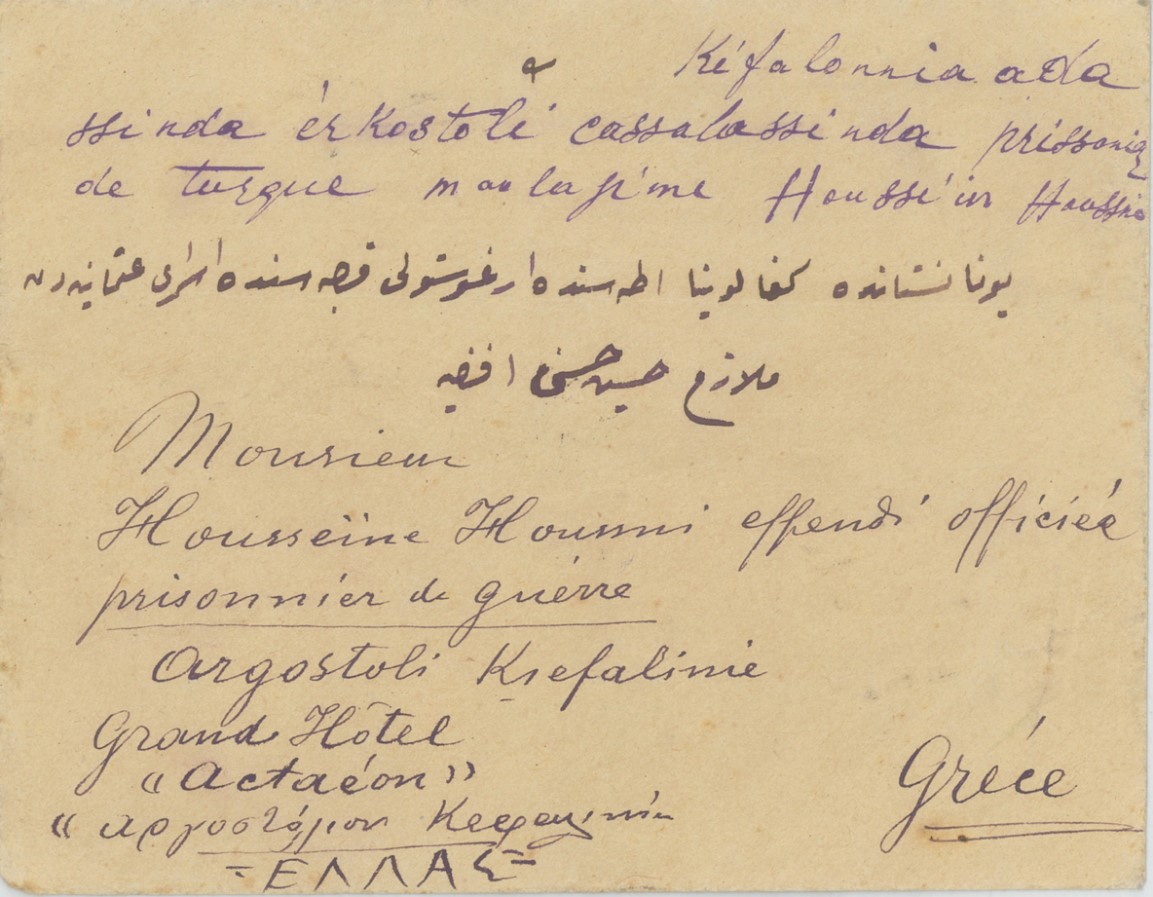 Kéfalonnia ada
ssinda érkostoli cassabassinda prissonié
de turque moulasime Houssein Houssni
يونانستانده كفالونيا اطه سنده ارغوستولى قصبه سنده اسراى عثمانيه دن
ملازم حسين حسنى افندى
Monsieur
Housseïne Housmi effendi officiée
prisonniér de guérre
Argostoli Kiefalinie
Grand Hôtel
"Actaéon"
Gréce
" Αργοστόλιον Κεφαλληνία
=ΕΛΛΑΣ=